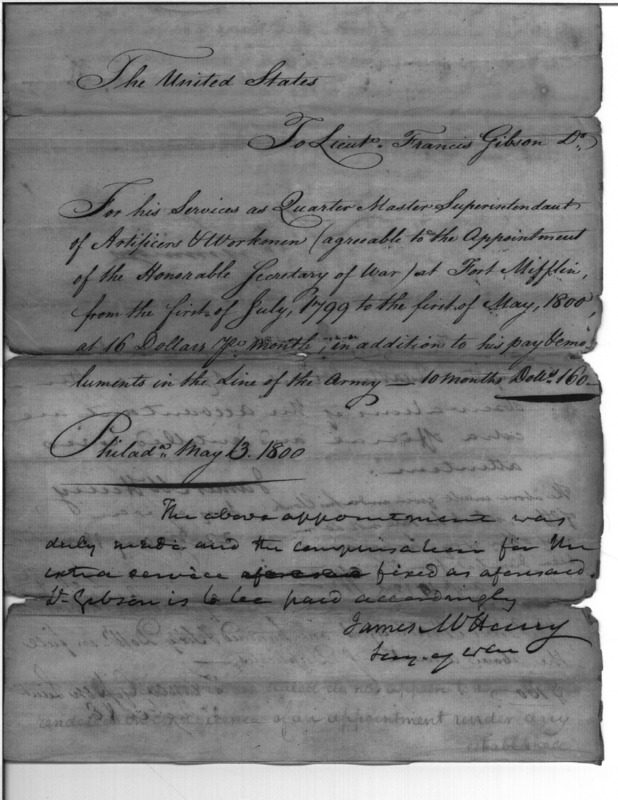 The United States
To Lieut. Francis Gibson Dr.
For his Services as Quarter Master Superintendant
of Artificers & Workmen (agreable to the Appointment
of the Honorable Secretary of War) at Fort Mifflin,
from the first of July, 1799 to the first of May, 1800,
at 16 Dollars per month, in addition to his pay & emo-
luments in the Line of the Army — 10 months Dolls. 160
Philada. May 13. 1800
The above appointment was
duly made and the compensation for the
extra service fixed as aforesaid.
Lt. Gibson is to be paid accordingly
James McHenry
Secy. of War